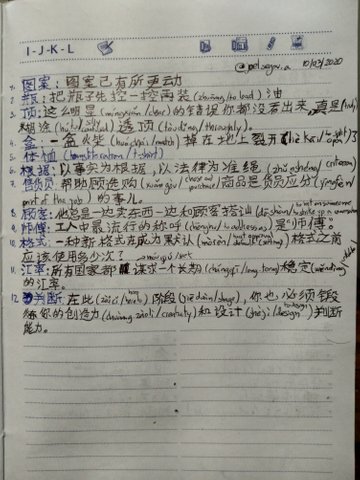 I-J-K-L
@joelsegov.a 10/03/2020
1. 图案: 图案已有所更动
2. 瓶: 把瓶子先控一控再装 (zhuāng/to load) 油
3. 顶: 这么明显 (míngxiǎn/clear) 的错误你都没看出来, 真是
糊涂 透顶 (tòudǐng/thoroughly).
4. 盒: 一盒火柴 (huǒchái/match) 掉在地上裂开
5. 体恤 /t-shirt)
6. 根据: 以事实为根据, 以法律为准绳 (zhǔnshéng/criterion)
7. 售货员: 帮助顾选购 (xuǎngòu/ choose and purchase) 商品是售货员应分 (yīngfèn/
part of the job) 的事儿.
8. 顾客: 他总是一边卖东西一边和顾客搭讪
9. 师傅: 工人中最流行的称呼 (chēnghu/to address) 是"师傅".
10. 格式: 一种新格式在成为默认 (mòrèn/ 格式之前
应该使用多少次?
11. 汇率: 所有国家都 谋求一个长期 (chángqī/long term) 稳定 (wěndìng/stable)
的汇率.
12. 判断: 在此 阶段 (jiēduàn/stage), 你也必须锻
练你的创造力 (chuàngzàolì/creativity) 和设计 (shèjì/design) 判断
能力.